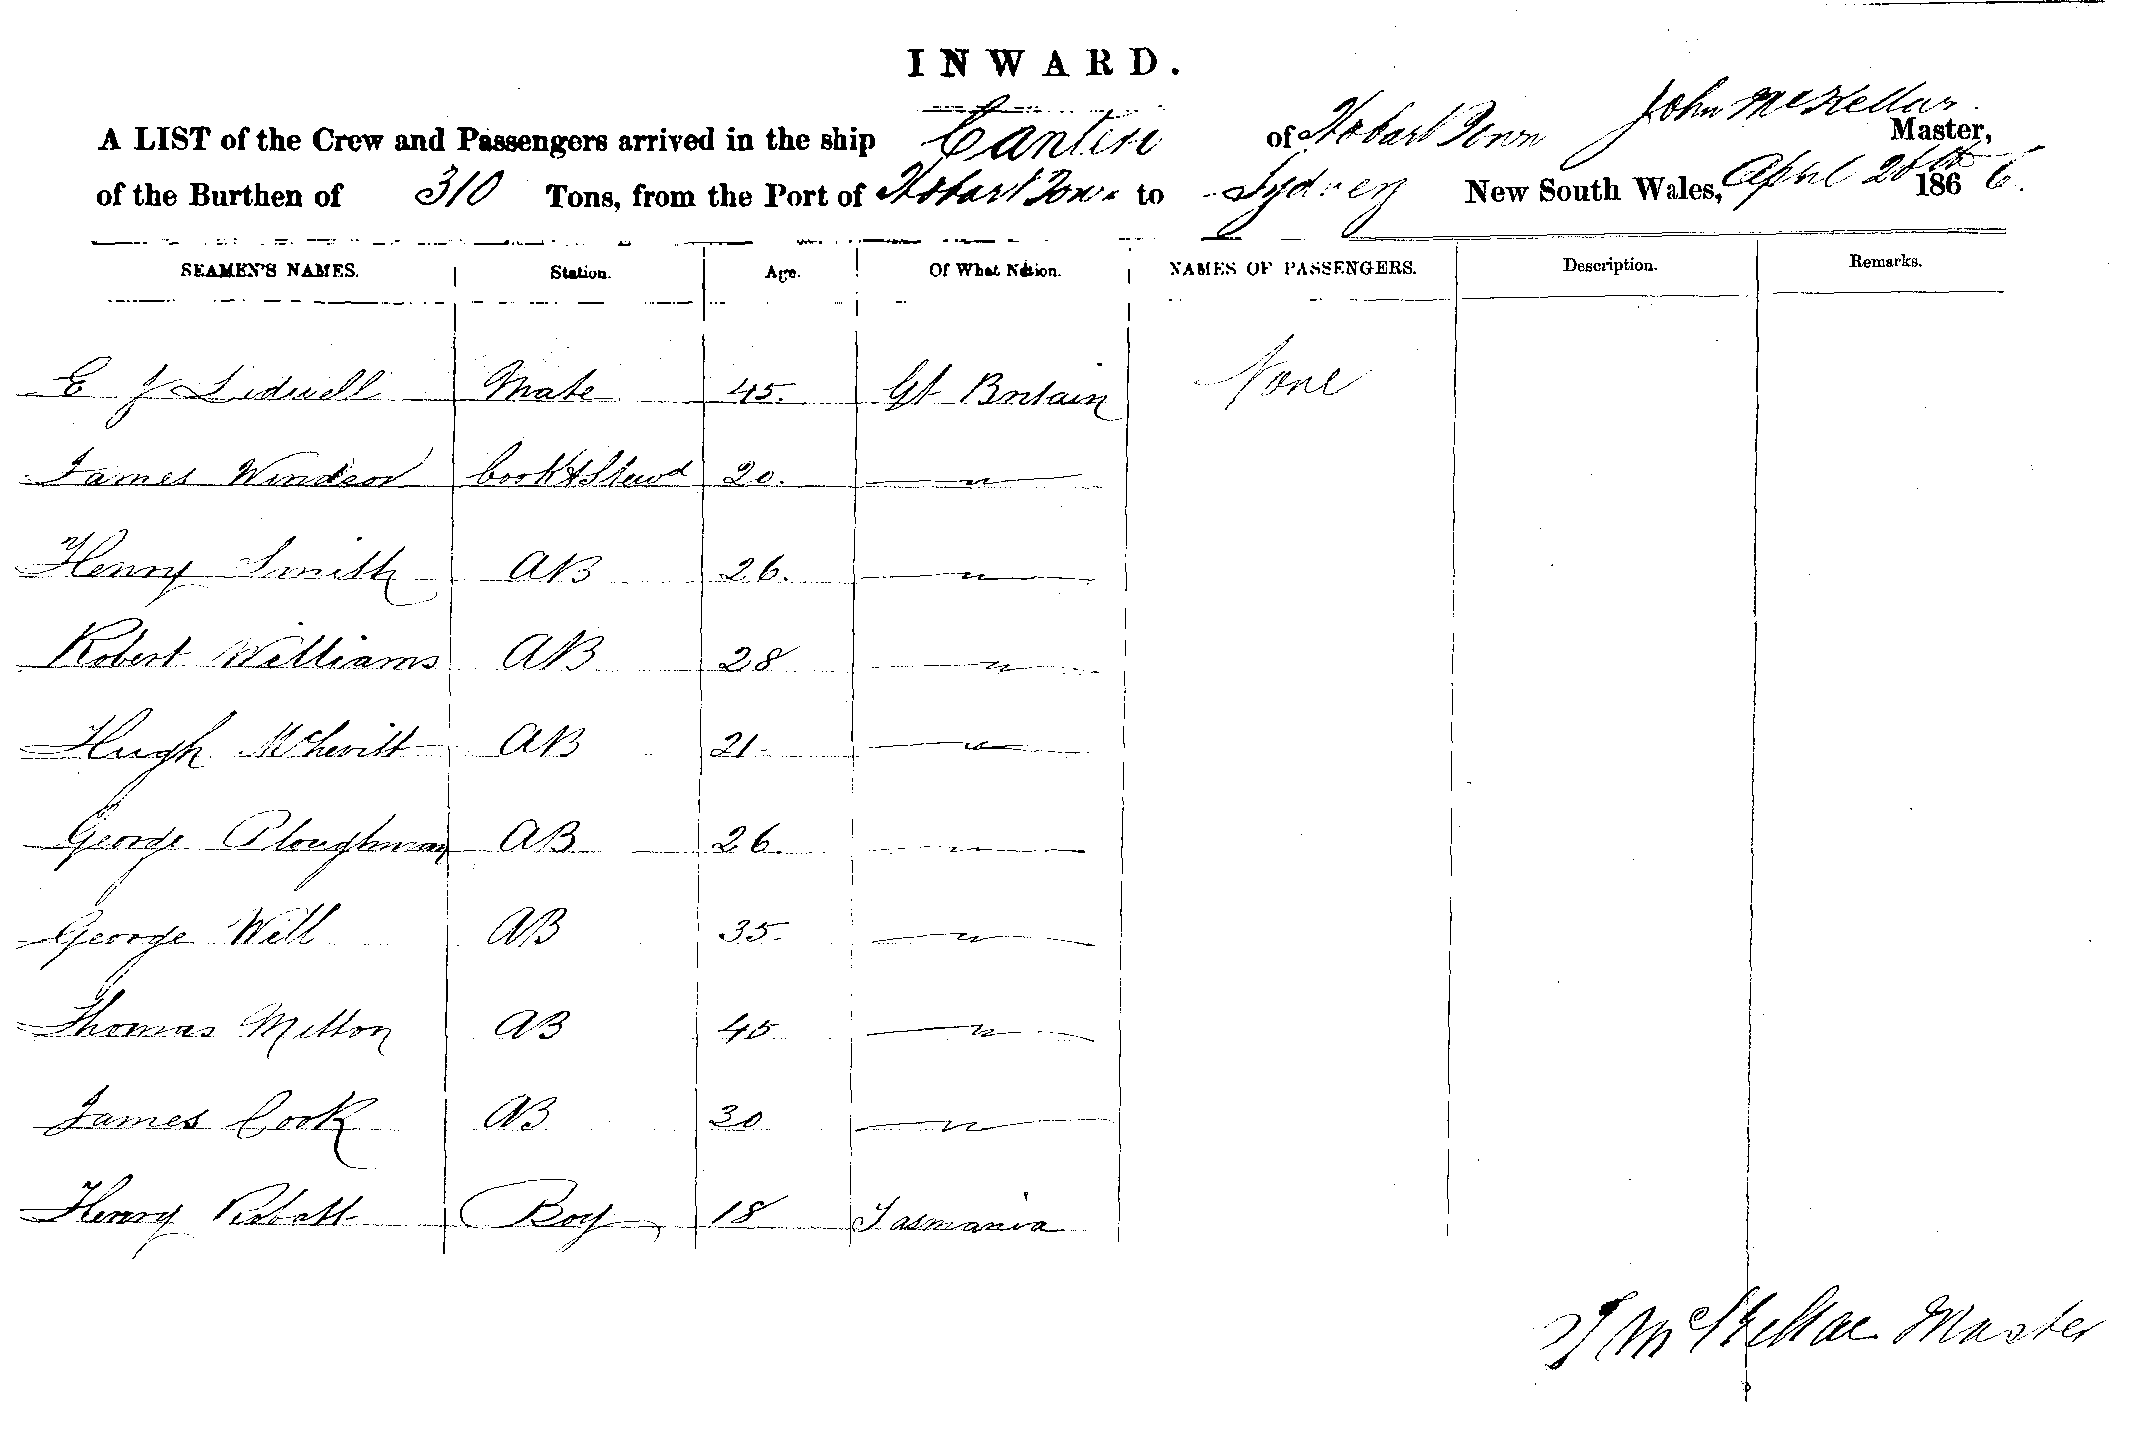 INWARD.
A LIST of the Crew and Passengers arrived in the ship of Hobart Town John McKellar Master,
of the Burthen of 310 Tons, from the Port of Hobart Town to Sydney New South Wales, April 1866.
SEAMEN'S NAMES. Station. Age. Of What Nation. NAMES OF PASSENGERS. Description. Remarks.
E J Lidwell Mate 45. Gt Britain None
James Windsor Cook & Stewd 20. — " —
Henry Smith AB 26. — " —
Robert Williams AB 28 — " —
Hugh AB 21 — " —
George Ploughman AB 26. — " —
George Will AB 35. — " —
Thomas AB 45 — " —
James Cook AB 30 — " —
Henry Boy 18 Tasmania
J McKellar Master